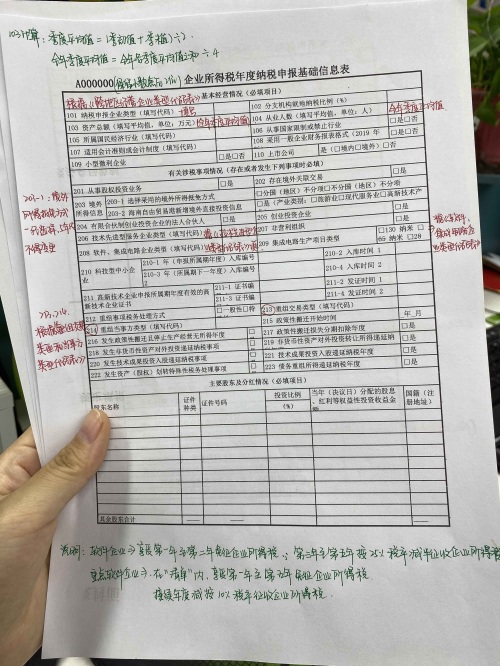 103计算：季度平均值=(季初值+季末值)÷2
全年季度平均值=全年各季度平均值之和÷4
A000000 企业所得税年度纳税申报基础信息表
基本经营情况（必填项目）
101 纳税申报企业类型（填写代码）
102 分支机构就地纳税比例（%）
103 资产总额（填写平均值，单位：万元） 全年季度平均值
104 从业人数（填写平均值，单位：人） 全年季度平均值
105 所属国民经济行业（填写代码）
106 从事国家限制或禁止行业 □是□否
107 适用会计准则或会计制度（填写代码）
108 采用一般企业财务报表格式（2019年 □是□否
109 小型微利企业 □是□否
110 上市公司 是（□境内□境外）□否
有关涉税事项情况（存在或者发生下列事项时必填）
201 从事股权投资业务 □是
202 存在境外关联交易 □是
203 境外所得信息
203-1 选择采用的境外所得抵免方式 □分国（地区）不分项□不分国（地区）不分项
203-2 海南自由贸易港新增境外直接投资信息 □是（产业类别：□旅游业□现代服务业□高新技术产
204 有限合伙制创业投资企业的法人合伙人 □是
205 创业投资企业 □是
206 技术先进型服务企业类型（填写代码）
207 非营利组织 □是
208 软件、集成电路企业类型（填写代码）
209 集成电路生产项目类型 □130纳米 □65纳米 □28
210 科技型中小企业
210-1 年（申报所属期年度）入库编号
210-2 入库时间 1
210-3 年（所属期下一年度）入库编号
210-4 入库时间 2
211 高新技术企业申报所属期年度有效的高新技术企业证书
211-1 证书编
211-2 发证时间 1
211-3 证书编
211-4 发证时间 2
212 重组事项税务处理方式 □一般性□特
213 重组交易类型（填写代码）
214 重组当事方类型（填写代码）
215 政策性搬迁开始时间 年_月
216 发生政策性搬迁且停止生产经营无所得年度 □是
217 政策性搬迁损失分期扣除年度 □是
218 发生非货币性资产对外投资递延纳税事项 □是
219 非货币性资产对外投资转让所得递延纳 □是
220 发生技术成果投资入股递延纳税事项 □是
221 技术成果投资入股递延纳税年度 □是
222 发生资产（股权）划转特殊性税务处理事项 □是
223 债务重组所得递延纳税年度 □是
主要股东及分红情况（必填项目）
股东名称
证件种类
证件号码
投资比例（%）
当年（决议日）分配的股息、红利等权益性投资收益金额
国籍（注册地址）
其余股东合计
说明：软件企业⇒享受第一年至第二年免征企业所得税；第三年至第五年按25%税率减半征收企业所得税
重点软件企业⇒在"清单"内，享受第一年至第五年免征企业所得税
接续年度减按10%税率征收企业所得税